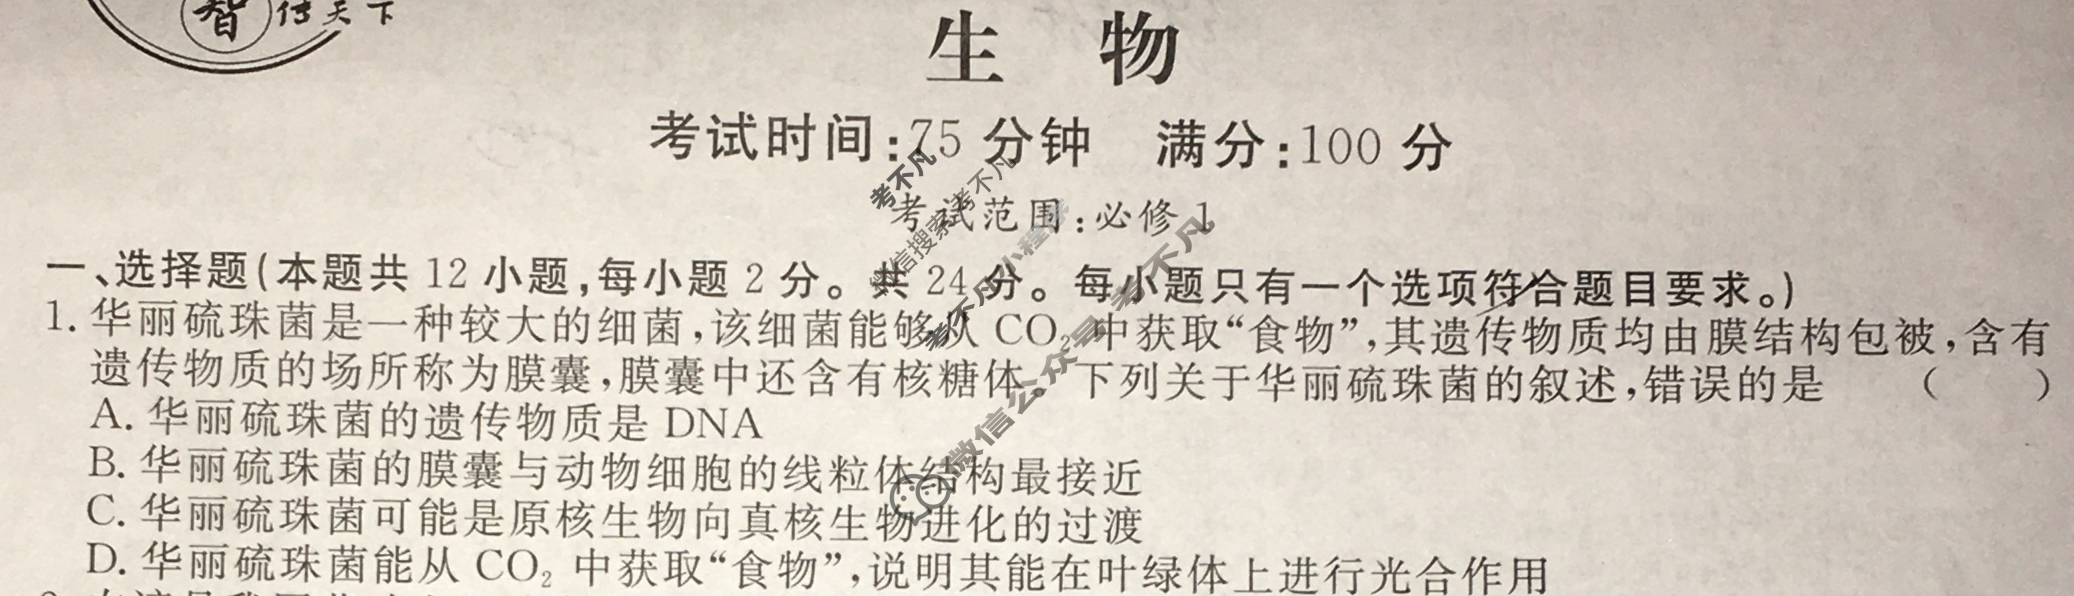 智 传天下
生 物
考试时间:75 分钟 满分:100 分
考试范围:必修 1
一、选择题(本题共 12 小题,每小题 2 分。共 24 分。每小题只有一个选项符合题目要求。)
1. 华丽硫珠菌是一种较大的细菌,该细菌能够从 CO₂ 中获取“食物”,其遗传物质均由膜结构包被,含有
遗传物质的场所称为膜囊,膜囊中还含有核糖体。下列关于华丽硫珠菌的叙述,错误的是 ( )
A. 华丽硫珠菌的遗传物质是 DNA
B. 华丽硫珠菌的膜囊与动物细胞的线粒体结构最接近
C. 华丽硫珠菌可能是原核生物向真核生物进化的过渡
D. 华丽硫珠菌能从 CO₂ 中获取“食物”,说明其能在叶绿体上进行光合作用
考不凡
微信搜索考不凡
考不凡小程序
微信公众号 考不凡